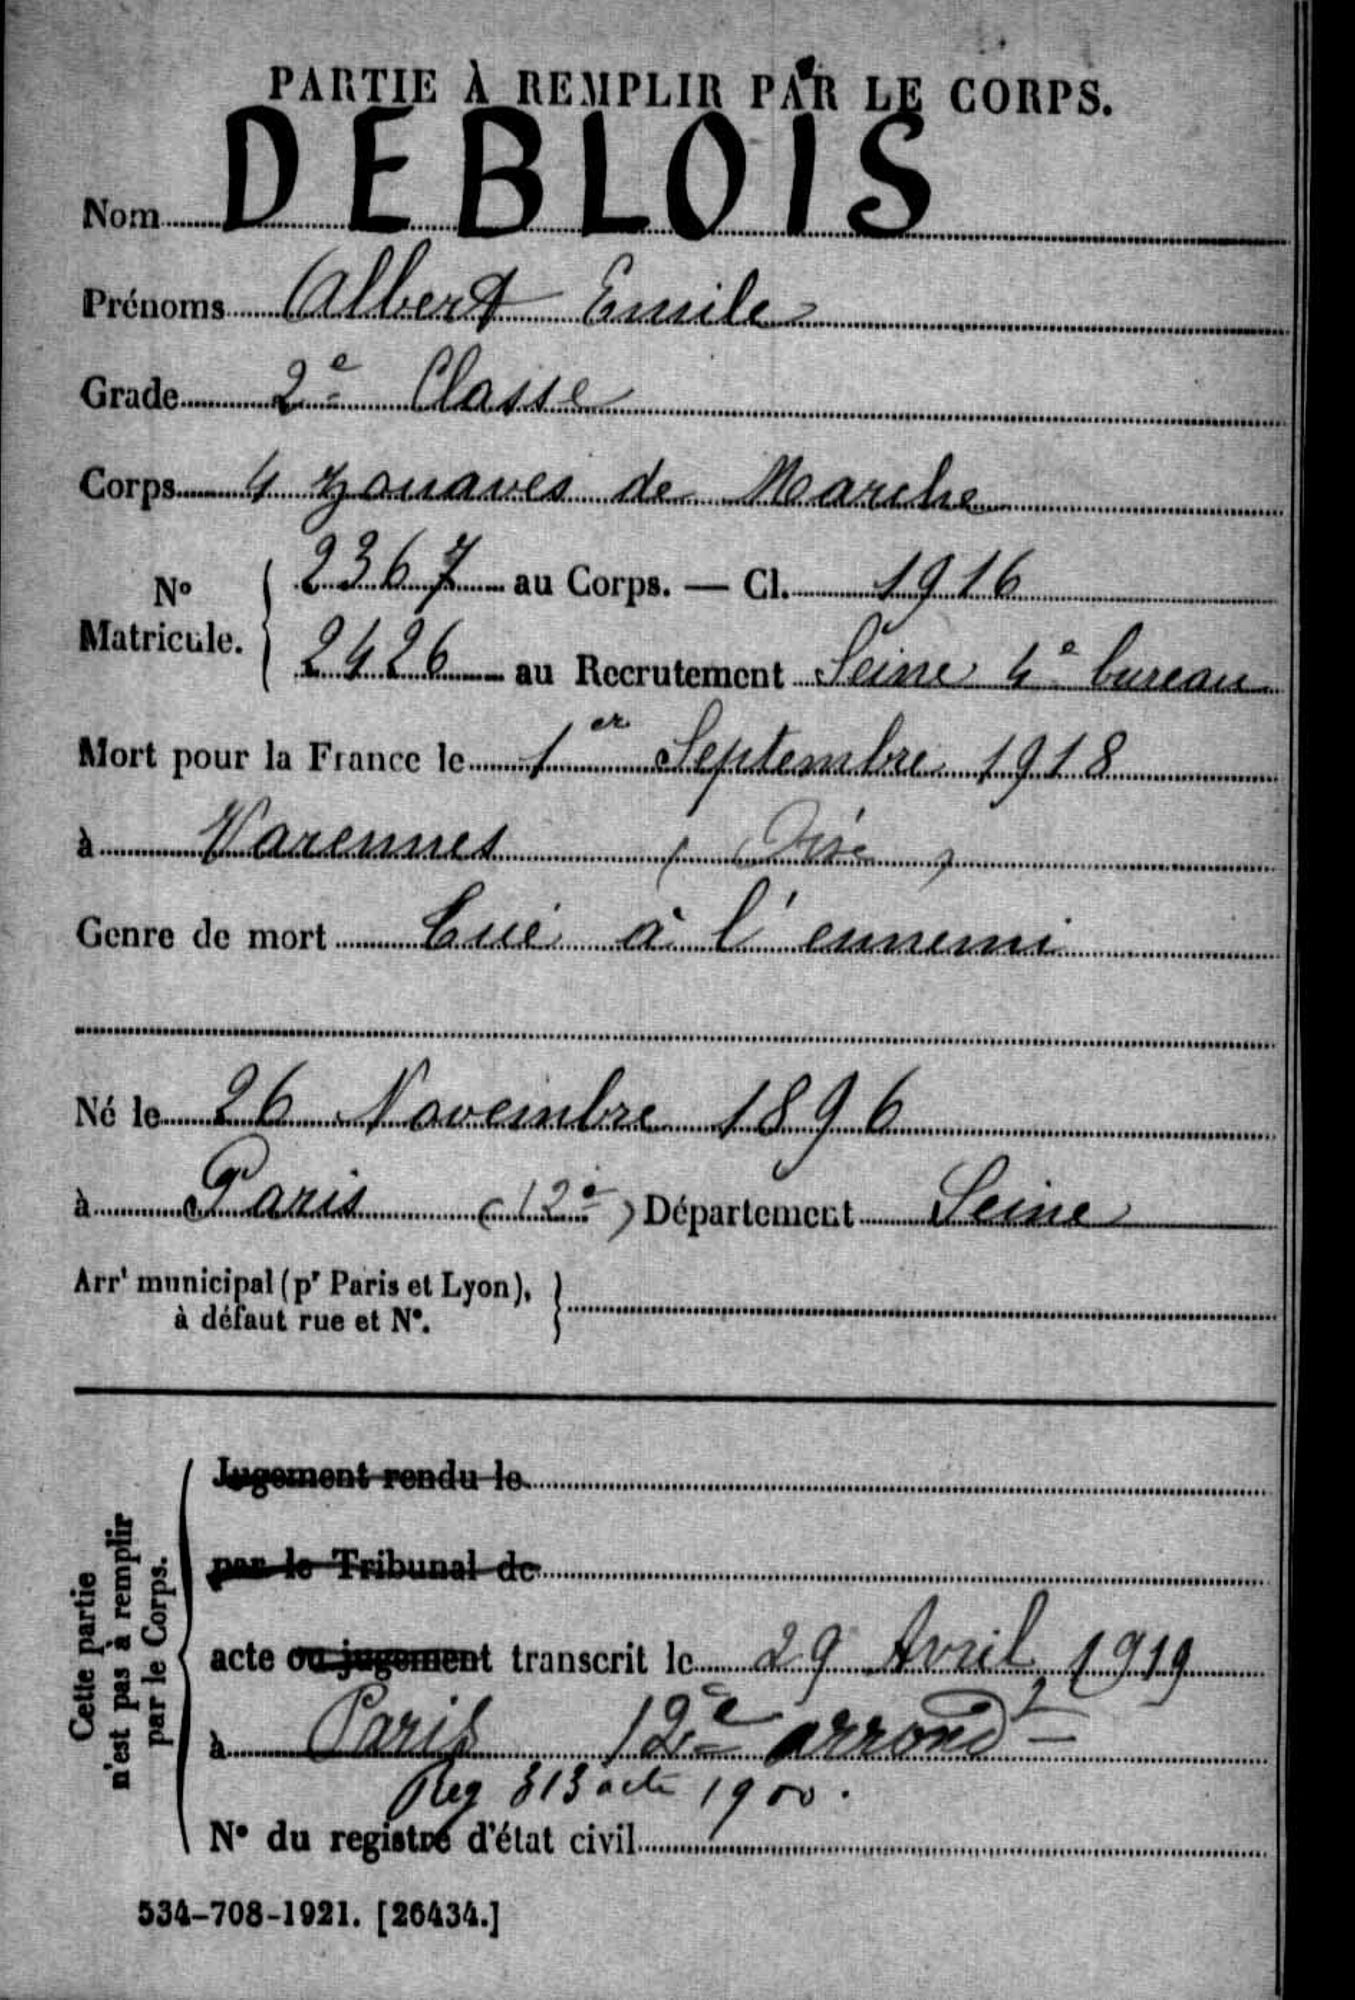 PARTIE À REMPLIR PAR LE CORPS.
Nom DEBLOIS
Prénoms Albert Emile
Grade 2e Classe
Corps 4 Zouaves de Marche
No Matricule. { 2367 au Corps. — Cl. 1916
2426 au Recrutement Seine 4e bureau
Mort pour la France le 1er Septembre 1918
à Varennes ( Oise )
Genre de mort Tué à l'ennemi
Né le 26 Novembre 1896
à Paris (12e) Département Seine
Arrt municipal (pr Paris et Lyon), }
à défaut rue et No.
Cette partie
n'est pas à remplir
par le Corps.
Jugement rendu le
par le Tribunal de
acte ou jugement transcrit le 29 Avril 1919
à Paris 12e arrondt
Reg 313 acte 1900.
No du registre d'état civil
534-708-1921. [26434.]